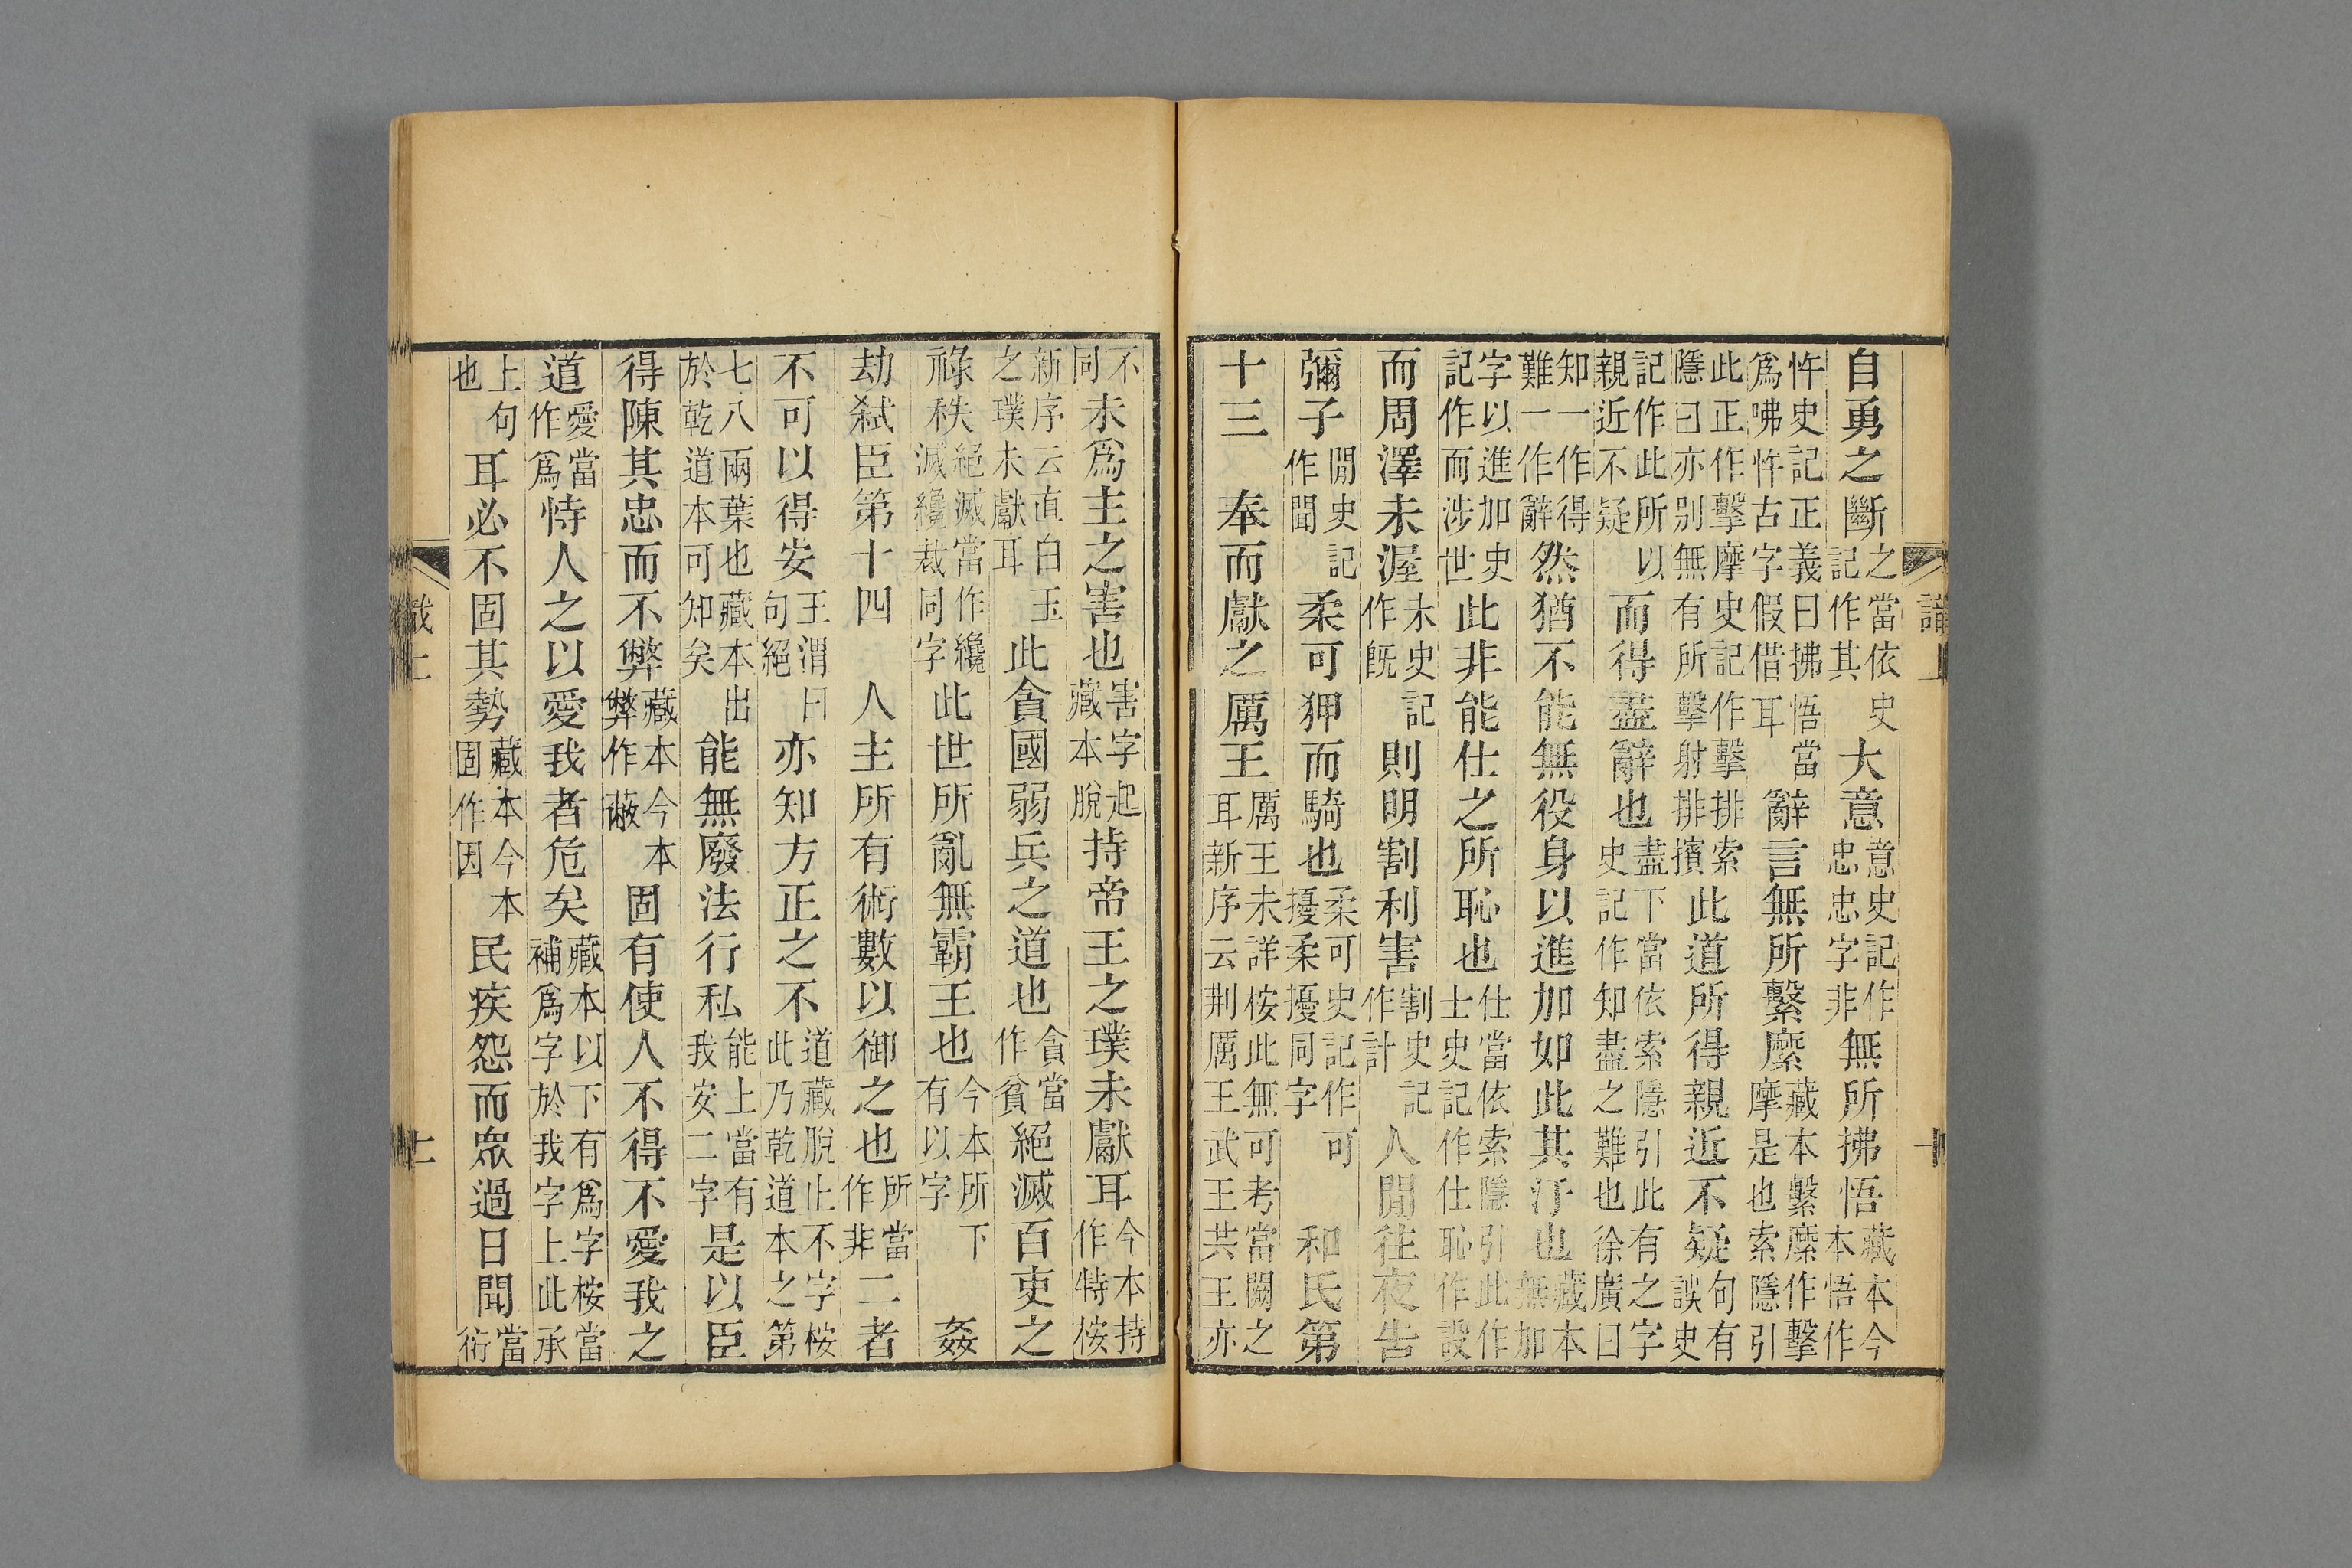 自勇之斷之當依史記作其大意意史記作忠忠字非無所拂悟藏本今本悟作
忤史記正義曰拂悟當爲咈忤古字假借耳辭言無所繫縻藏本繫縻作擊摩是也索隱引
此正作擊摩史記作擊排索隱曰亦别無有所擊射排擯此道所得親近不疑句有誤史
記作此所以親近不疑而得盡辭也盡下當依索隱引此有之字史記作知盡之難也徐廣曰
知一作得難一作辭然猶不能無役身以進加如此其汙也藏本無加
字以進加史記作而涉世此非能仕之所恥也仕當依索隱引此作士史記作仕恥作設
而周澤未渥未史記作既則明割利害割史記作計人閒往夜告
彌子閒史記作聞柔可狎而騎也柔可史記作可擾柔擾同字 和氏第
十三 奉而獻之厲王厲王未詳桉此無可考當闕之耳新序云荆厲王武王共王亦
不同未爲主之害也害字起藏本脫持帝王之璞未獻耳今本持作特桉
新序云直白玉之璞未獻耳此貪國弱兵之道也貪當作貧絕滅百吏之
祿秩絕滅當作纔滅纔裁同字此世所亂無霸王也今本所下有以字 姦
劫弒臣第十四 人主所有術數以御之也所當作非二者
不可以得安王渭曰句絕亦知方正之不道藏脫止不字桉此乃乾道本之第
七八兩葉也藏本出於乾道本可知矣能無廢法行私能上當有我安二字是以臣
得陳其忠而不弊藏本今本弊作蔽固有使人不得不愛我之
道愛當作爲恃人之以愛我者危矣藏本以下有爲字桉當補爲字於我字上此承
上句也耳必不固其勢藏本今本固作因民疾怨而眾過日聞當衍